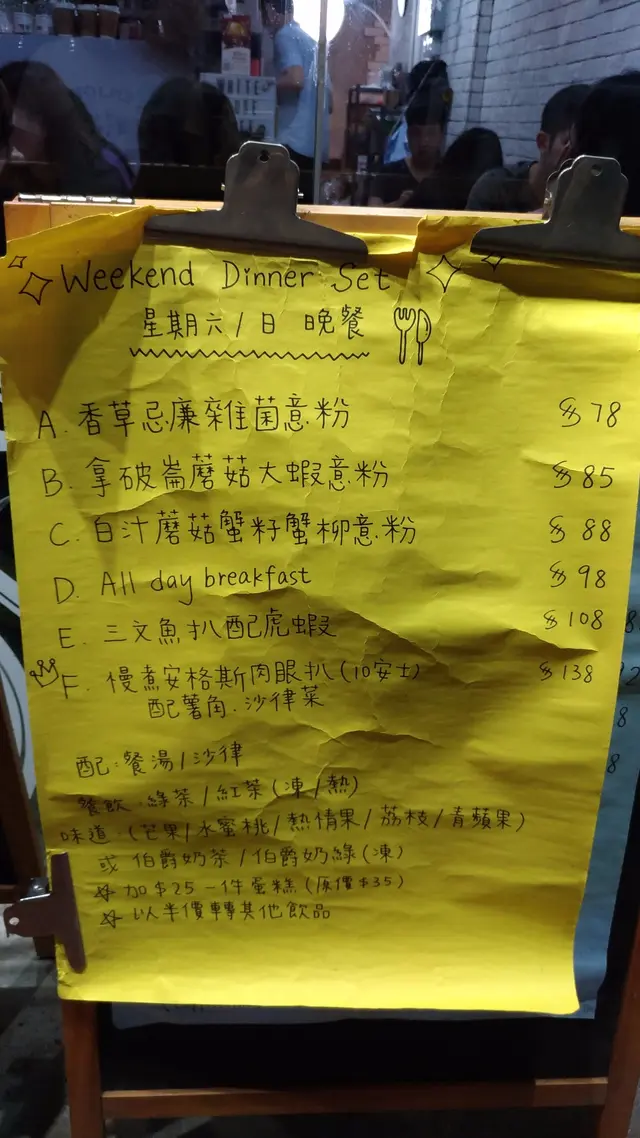 Weekend Dinner Set
星期六/日 晚餐
A. 香草忌廉雜菌意粉 $78
B. 拿破崙蘑菇大蝦意粉 $85
C. 白汁蘑菇蟹籽蟹柳意粉 $88
D. All day breakfast $98
E. 三文魚扒配虎蝦 $108
F. 慢煮安格斯肉眼扒(10安士) $138
配薯角.沙律菜
配:餐湯/沙律
餐飲:綠茶/紅茶(凍/熱)
味道:(芒果/水蜜桃/熱情果/荔枝/青蘋果)
或 伯爵奶茶/伯爵奶綠(凍)
加$25一件蛋糕(原價$35)
以半價轉其他飲品